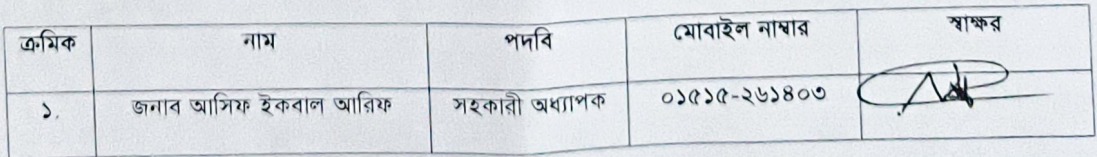 ক্রমিক নাম পদবি মোবাইল নাম্বার স্বাক্ষর
১. জনাব আসিফ ইকবাল আরিফ সহকারী অধ্যাপক ০১৫১৫-২৬১৪০৩